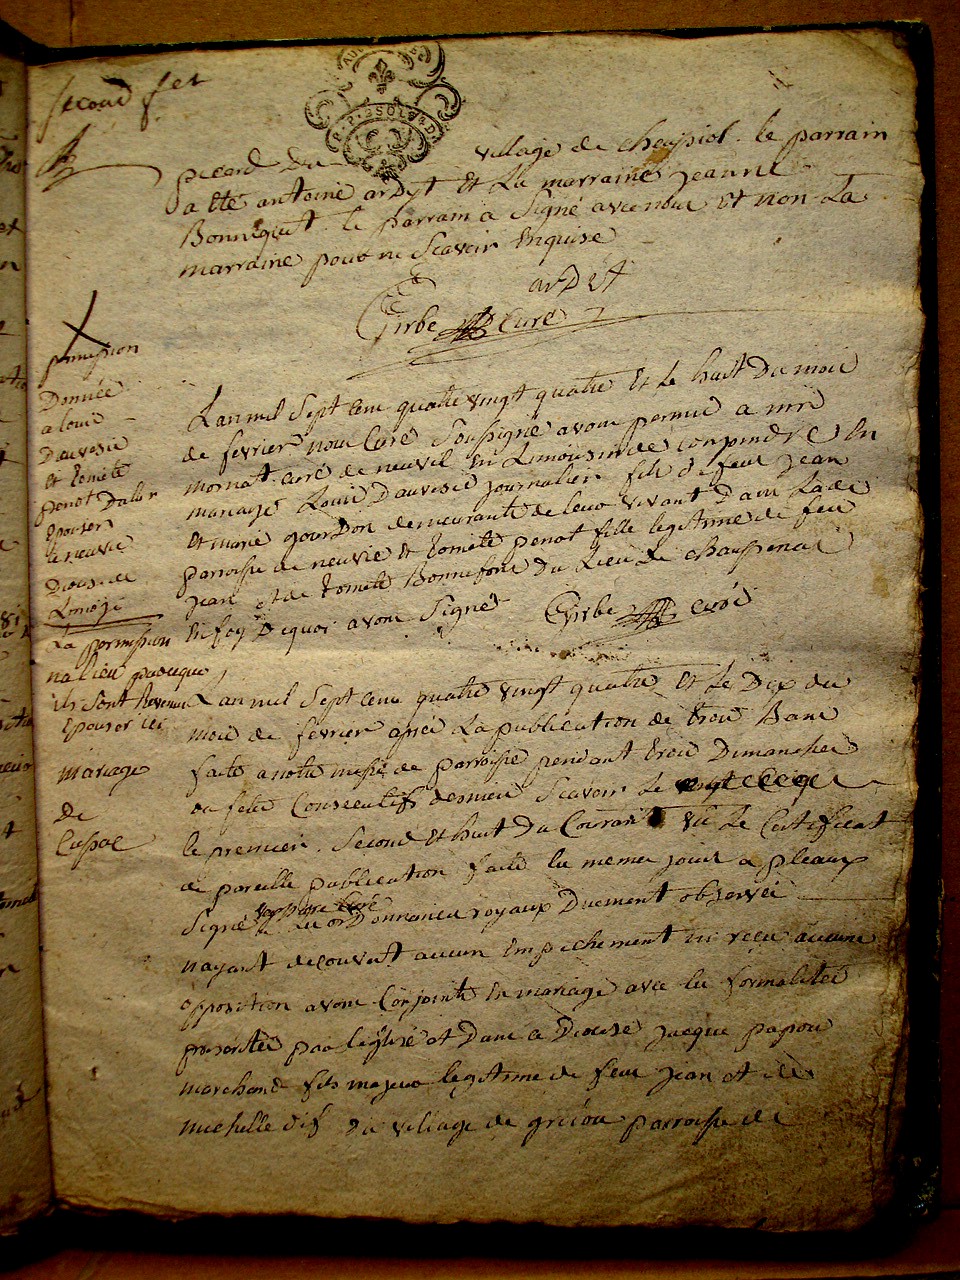 second fet
picard du village de chauspiol. le parrain
a été antoine ardyt et la marraine jeanne
Bonnequet. le parrain a signé avec nous et non La
marraine pour ne scavoir Enquise
arDet
Girbe Curé
permission
Donnée
a louis
Dauvesie
et tomete
penot D
Epouser
a neuvic
Diocese de
Limoge
La permission
na lieu
ils sont Revenus
Epouser ici
L'an mil sept cens quatre vingt quatre Et le huit Du mois
de fevrier nous Curé soussigné avons permis a mr
mornat curé de neuvil En Limousin de conjoindre En
mariage Louis Dauvesie journalier fils de feus jean
Et marie gourdon demeurante de leur vivant Dans La de
parroisse de neuvie et tomete penot fille legitime de feu
jean et de tomete Bonnefons du Lieu de
En foy Dequoi avons signé Girbe curé
mariage
de
Cussac
L'an mil sept cens quatre vingt quatre Et Le Dix du
mois de fevrier apres La publication de trois Bans
faite a notre messe de parroisse pendant trois Dimanches
ou fetes Consecutifs Scavoir Le
le premier. second et huit du Courant vu Le Certificat
de pareille publication faite les memes jours a pleaux
signé Les ordonnances royaux Duement observées
nayant decouvert aucun Empechement ni reçu aucune
opposition avons Conjoints En mariage avec les formalites
prescrites par leglise et Dans ce Diocese jacque papon
marchand fils majeur legitime de feus jean et de
michelle dif du village de griou parroisse de